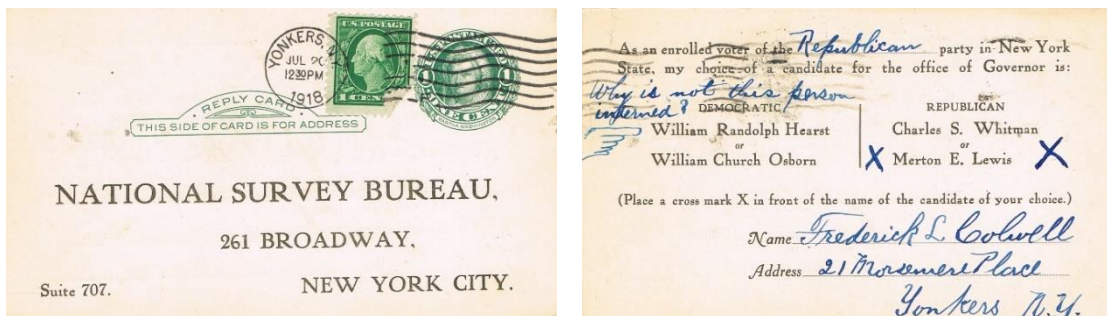 YONKERS, N.Y.
JUL 20
12 30 PM
1918
U.S. POSTAGE
1 CENT 1
U.S. POSTAGE
1 ONE CENT 1
REPLY CARD
THIS SIDE OF CARD IS FOR ADDRESS
NATIONAL SURVEY BUREAU,
261 BROADWAY,
Suite 707. NEW YORK CITY.
As an enrolled voter of the Republican party in New York
State, my choice of a candidate for the office of Governor is:
Why is not this person
interned?
DEMOCRATIC
William Randolph Hearst
or
William Church Osborn
REPUBLICAN
Charles S. Whitman
or
X Merton E. Lewis X
(Place a cross mark X in front of the name of the candidate of your choice.)
Name Frederick L. Colwell
Address 21 Morsemere Place
Yonkers N.Y.